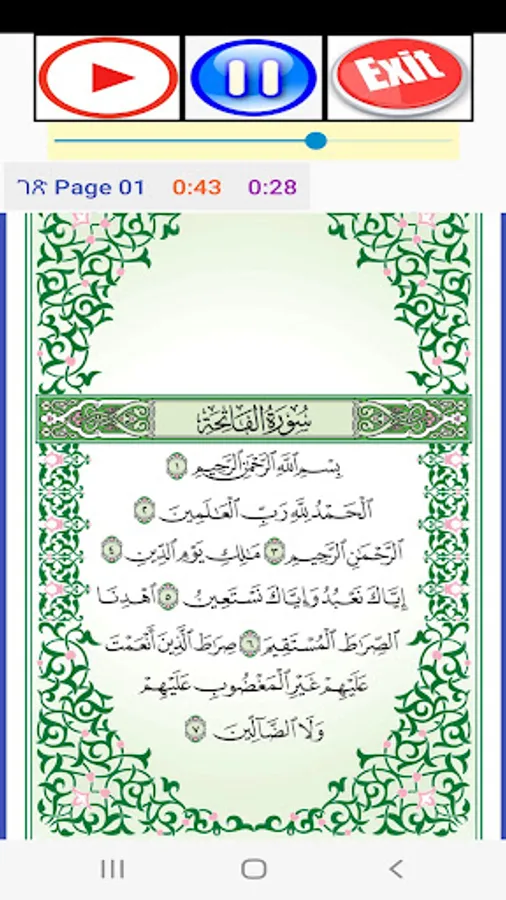 Exit
ገጽ Page 01 0:43 0:28
سُورَةُ الفَاتِحَةِ
بِسْمِ اللَّهِ الرَّحْمَٰنِ الرَّحِيمِ ١
الْحَمْدُ لِلَّهِ رَبِّ الْعَالَمِينَ ٢
الرَّحْمَٰنِ الرَّحِيمِ ٣ مَالِكِ يَوْمِ الدِّينِ ٤
إِيَّاكَ نَعْبُدُ وَإِيَّاكَ نَسْتَعِينُ ٥ اهْدِنَا
الصِّرَاطَ الْمُسْتَقِيمَ ٦ صِرَاطَ الَّذِينَ أَنْعَمْتَ
عَلَيْهِمْ غَيْرِ الْمَغْضُوبِ عَلَيْهِمْ
وَلَا الضَّالِّينَ ٧